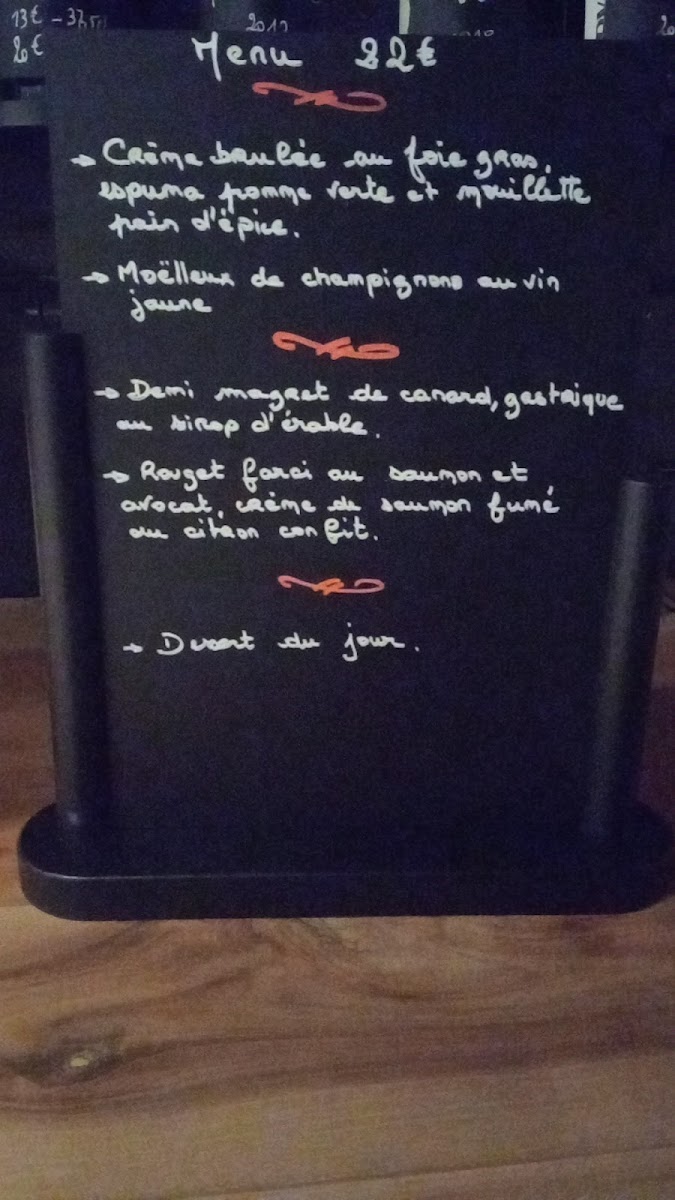 13€ - 37,5cl
20€
2012
Menu 22€
→ Crème brulée au foie gras,
espuma pomme verte et mouillette
pain d'épice.
→ Moëlleux de champignons au vin
jaune
→ Demi magret de canard, gastrique
au sirop d'érable.
→ Rouget farci au saumon et
avocat, crème de saumon fumé
au citron confit.
→ Dessert du jour.